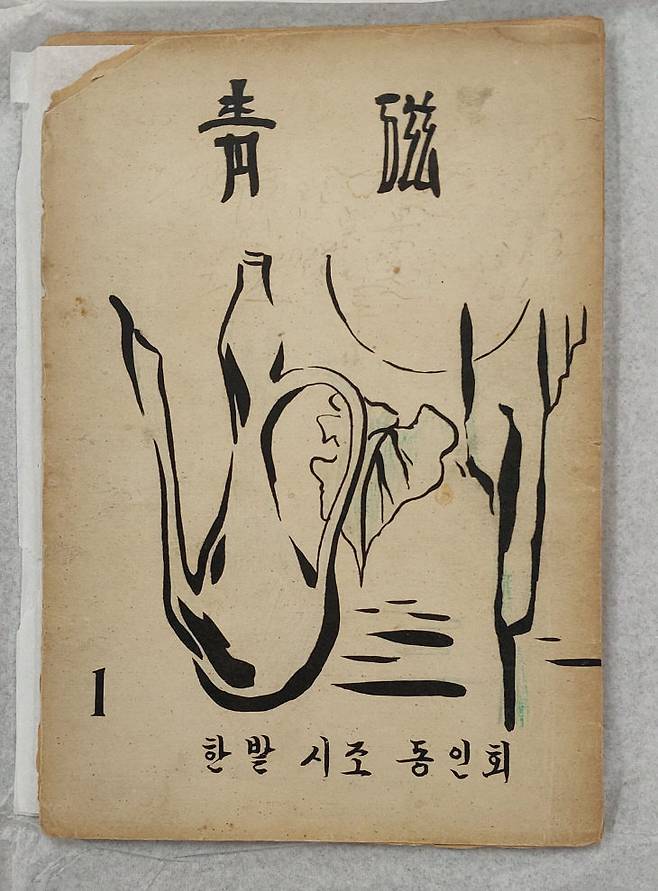 青磁
1
한밭 시조 동인회